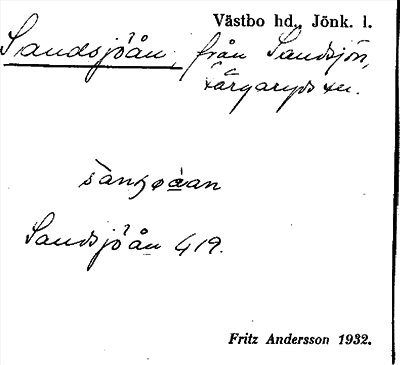 Västbo hd., Jönk. l.
Sandsjöån, från Sandsjön,
Färgaryds sn.
Sandsjöån 419.
Fritz Andersson 1932.